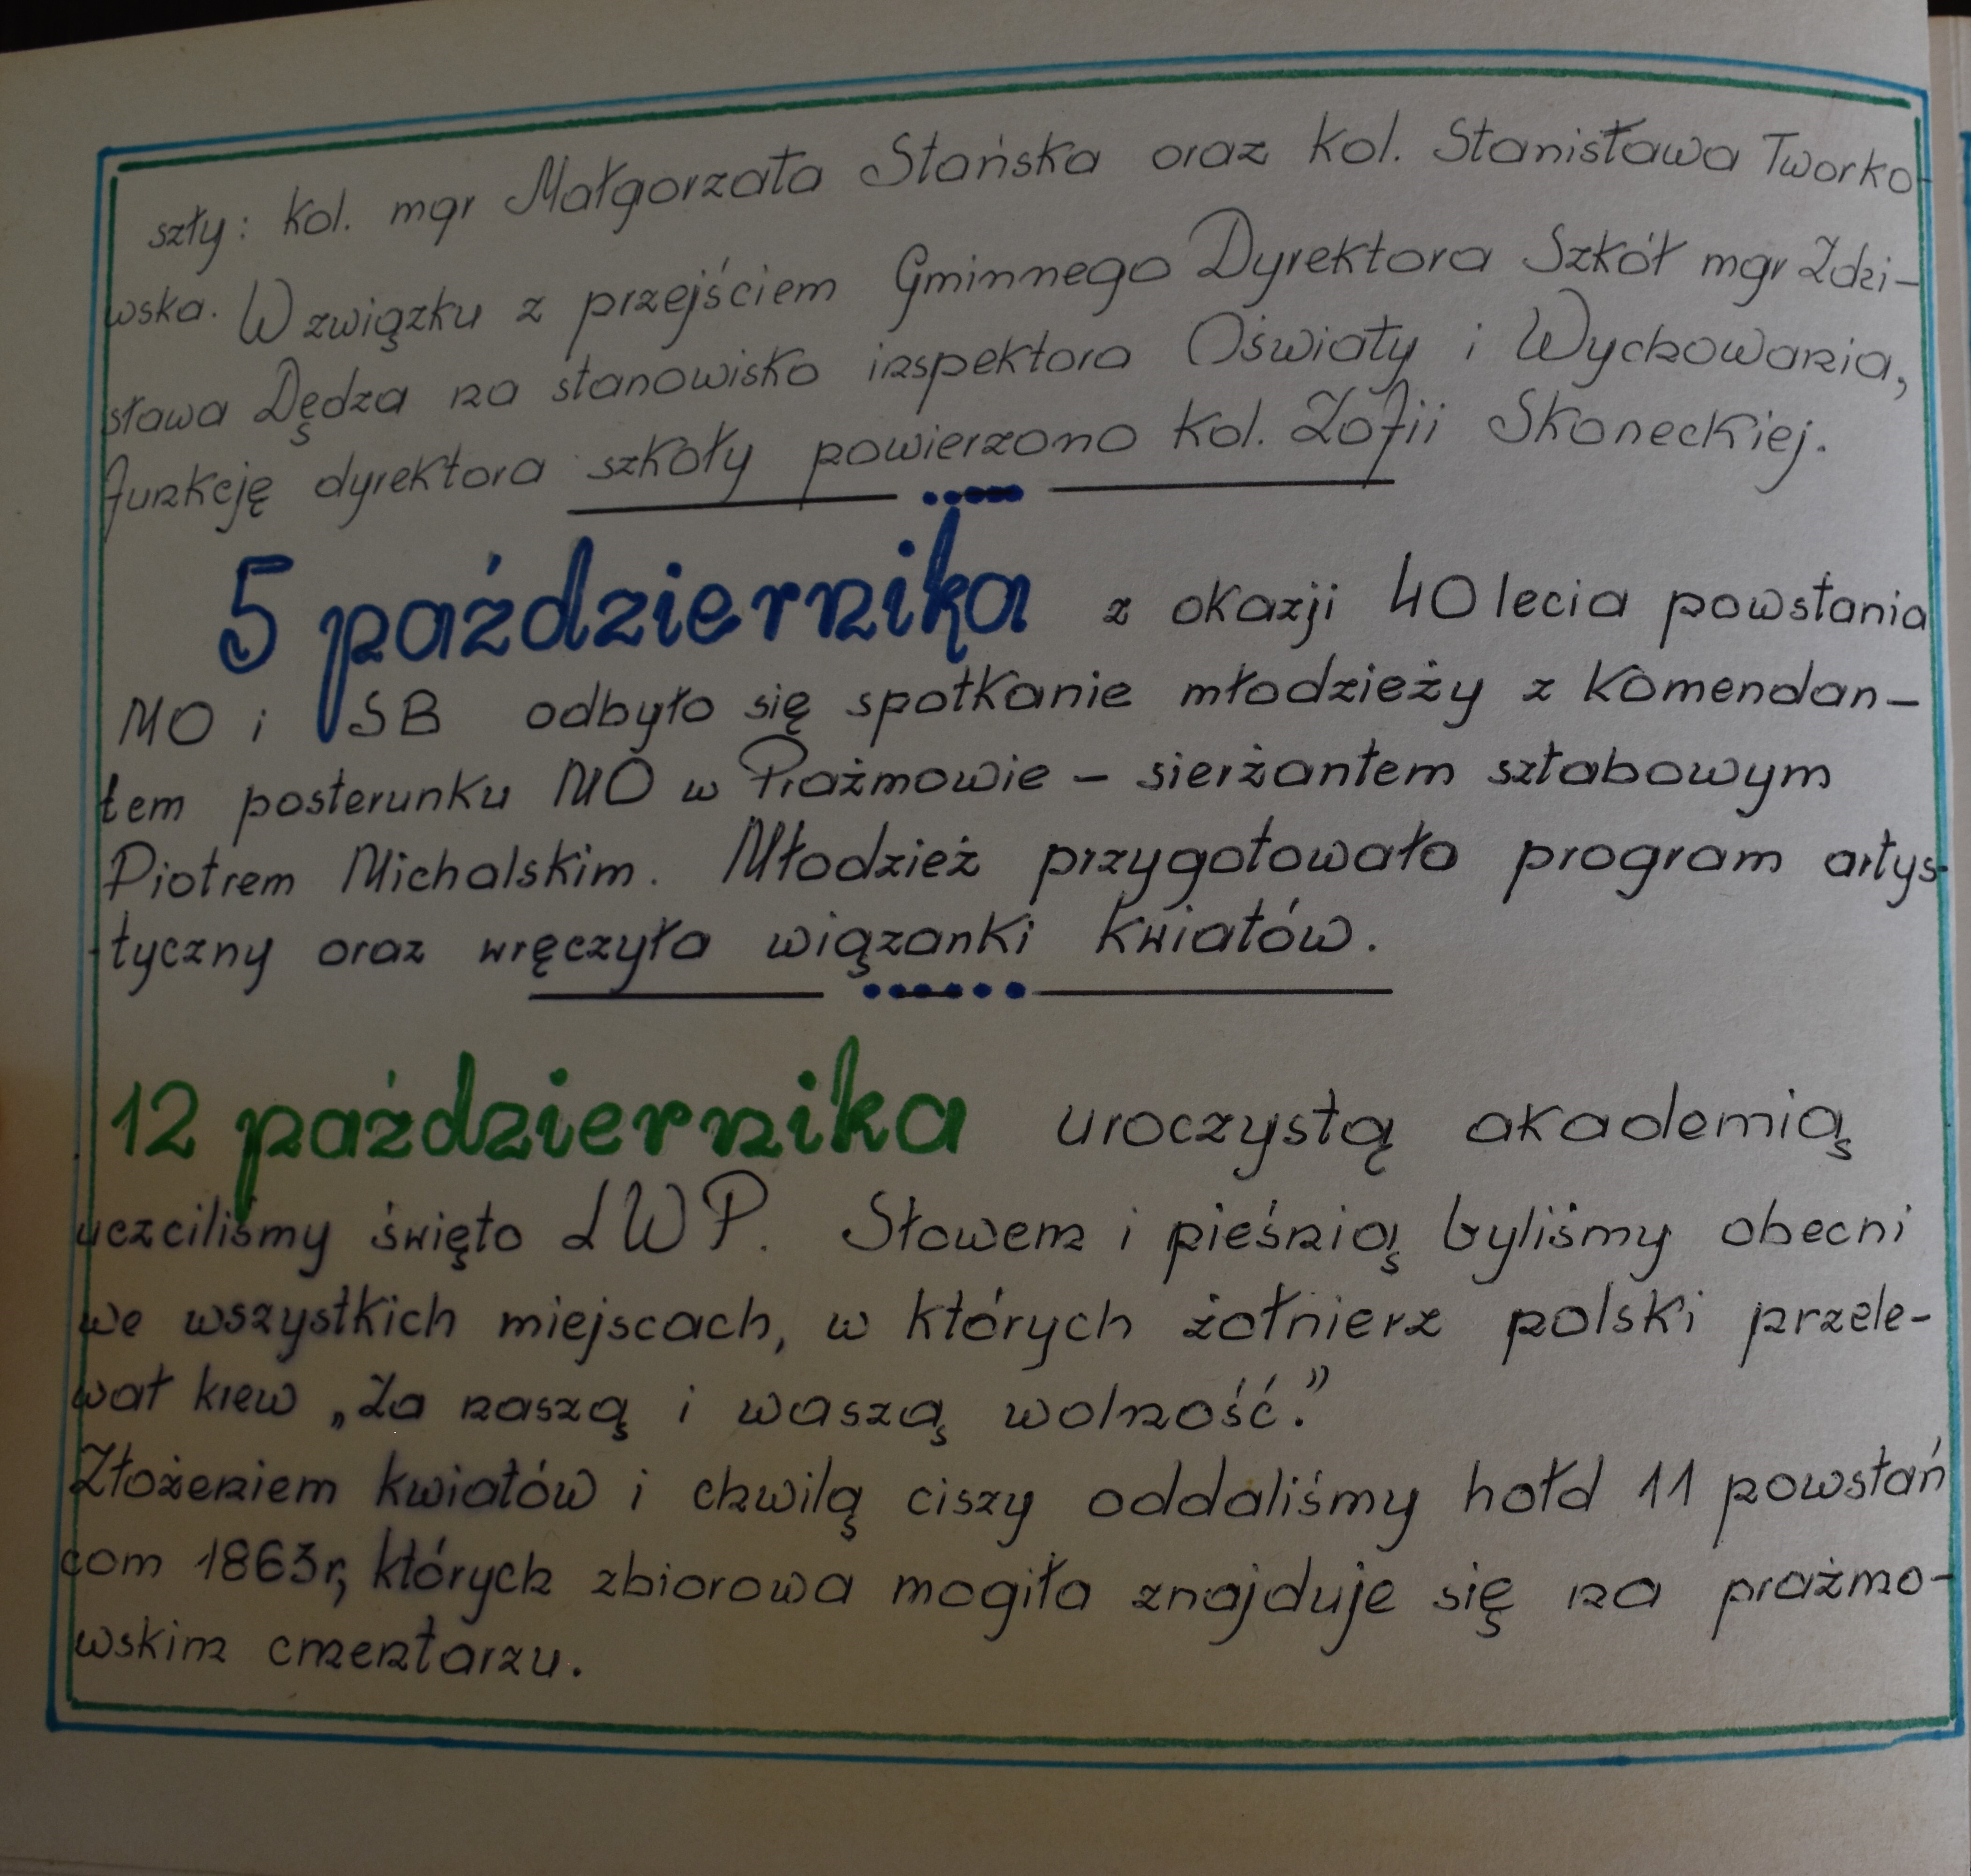 szły: kol. mgr Małgorzata Stańska oraz kol. Stanisława Tworko-
wska. W związku z przejściem Gminnego Dyrektora Szkół mgr Zdzi-
sława Dędza na stanowisko inspektora Oświaty i Wychowania,
funkcję dyrektora szkoły powierzono kol. Zofii Skoneckiej.
5 października z okazji 40 lecia powstania
MO i SB odbyło się spotkanie młodzieży z komendan-
tem posterunku MO w Prażmowie - sierżantem sztabowym
Piotrem Michalskim. Młodzież przygotowała program artys-
-tyczny oraz wręczyła wiązanki kwiatów.
12 października uroczystą akademią
uczciliśmy święto LWP. Słowem i pieśnią byliśmy obecni
we wszystkich miejscach, w których żołnierz polski przele-
wał krew „Za naszą i waszą wolność."
Złożeniem kwiatów i chwilą ciszy oddaliśmy hołd 11 powstań
com 1863r, których zbiorowa mogiła znajduje się na prażmo-
wskim cmentarzu.